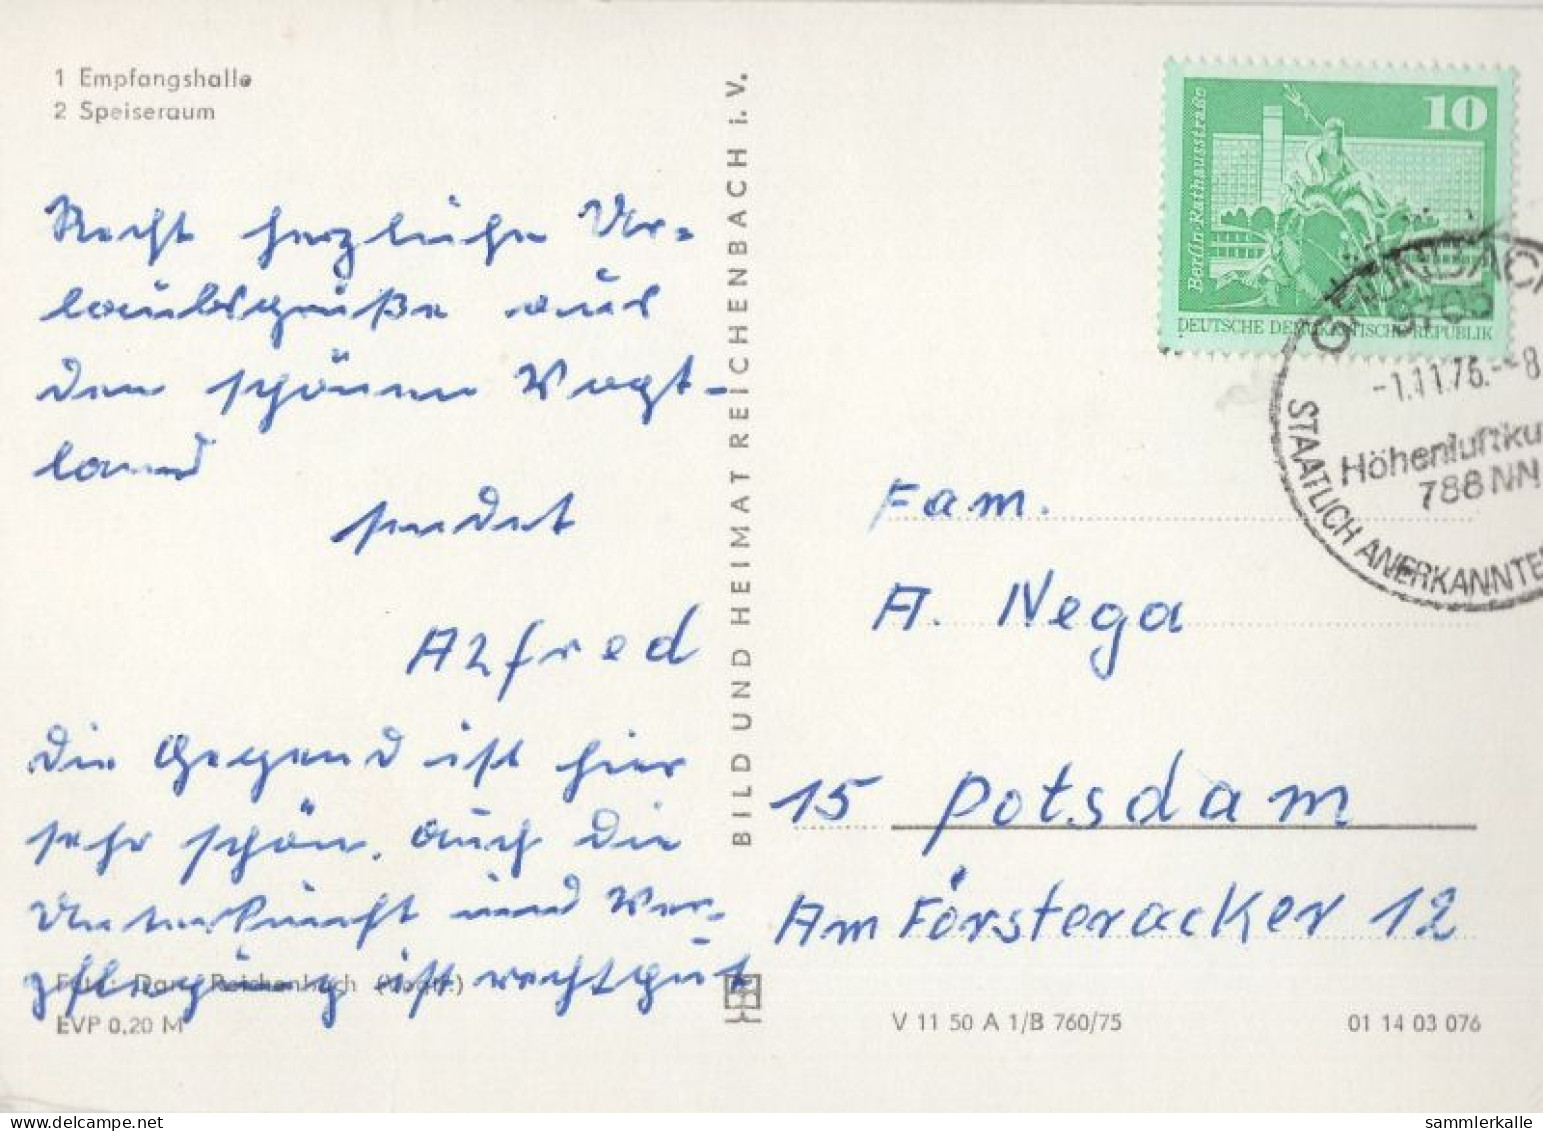 1 Empfangshalle
2 Speiseraum
Recht herzliche Ur-
laubsgrüße aus
dem schönen Vogt-
land
sendet
Alfred
Die Gegend ist hier
sehr schön. Auch die
Unterkunft und Ver-
pflegung ist recht gut
Foto: Reichenbach (Vogtl.)
EVP 0,20 M
BILD UND HEIMAT REICHENBACH i. V.
10
Berlin-Rathausstraße
DEUTSCHE DEMOKRATISCHE REPUBLIK
GRÜNBACH
9705
-1.11.76.--8
Höhenluftku
788 NN
STAATLICH ANERKANNTE
Fam.
A. Nega
15 Potsdam
Am Försteracker 12
V 11 50 A 1/B 760/75
01 14 03 076
delcampe.net
sammlerkalle